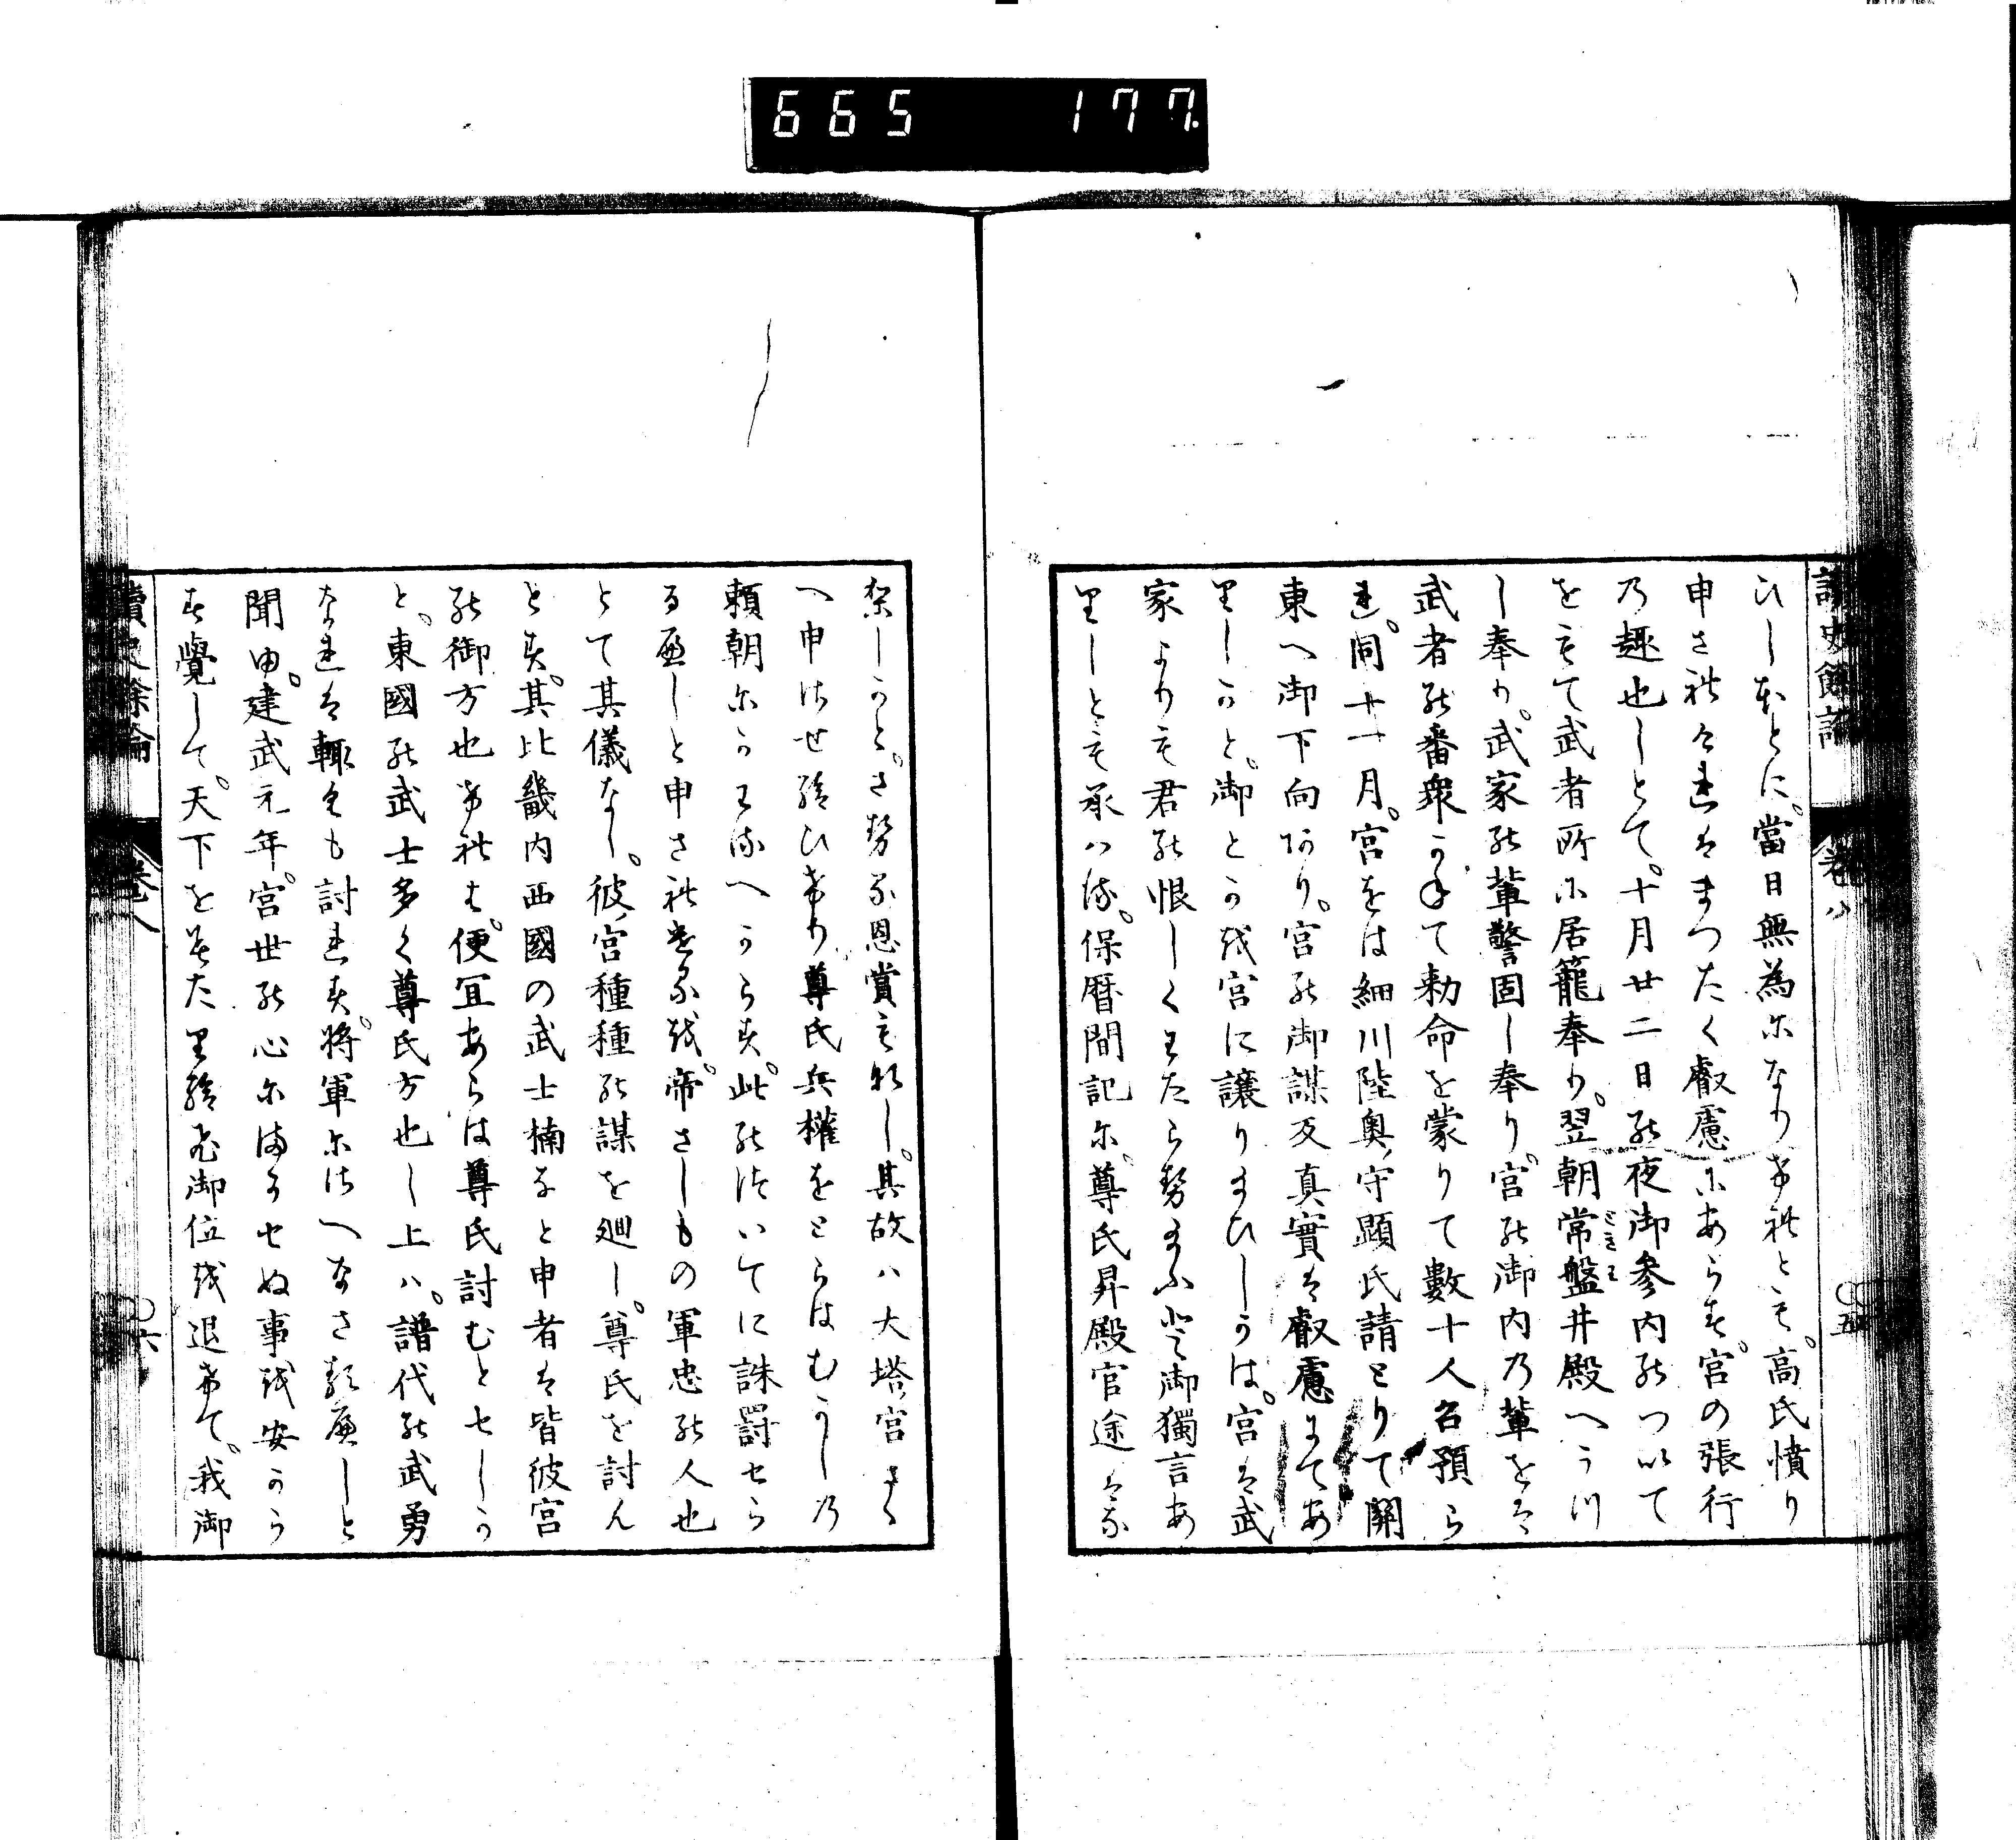 665 177
讀史餘論 卷八 五
ひしほとに。當日無為になりけれとも。高氏憤り
申されけれはまつたく叡慮にあらす。宮の張行
の趣也しとて。十月廿二日の夜御参内のついて
をもて武者所に居籠奉り。翌朝常盤井殿へうつ
し奉り。武家の輩警固し奉り。宮の御内の輩をは
武者の番衆かねて勅命を蒙りて數十人召預ら
れ。同十一月。宮をは細川陸奥守顕氏請とりて關
東へ御下向あり。宮の御謀反真實は叡慮にてあ
りしかと。御とかを宮に譲りまひしかは。宮は武
家よりも君の恨しくわたらせまふと御獨言あ
りしとも承はる。保暦間記に。尊氏昇殿官途
しかと。させる恩賞もなし。其故ハ大塔宮さゝ
へ申させ給ひけり尊氏兵權をとらはむかしの
頼朝にかはるへからす。此のついてに誅罰せら
る可しと申されけるを。帝さしもの軍忠の人也
とて其儀なし。彼宮種種の謀を廻し。尊氏を討ん
とす。其比畿内西國の武士楠なと申者は皆彼宮
の御方也けれは。便宜あらは尊氏討むとせしか
と。東國の武士多く尊氏方也し上ハ。譜代の武勇
なれは輙くも討れす。將軍にはへなさる可しと
聞ゆ。建武元年。宮世の心にまかせぬ事を安から
す覺して。天下を志たり給飛御位を退けて。我御
讀史餘論 卷八 六